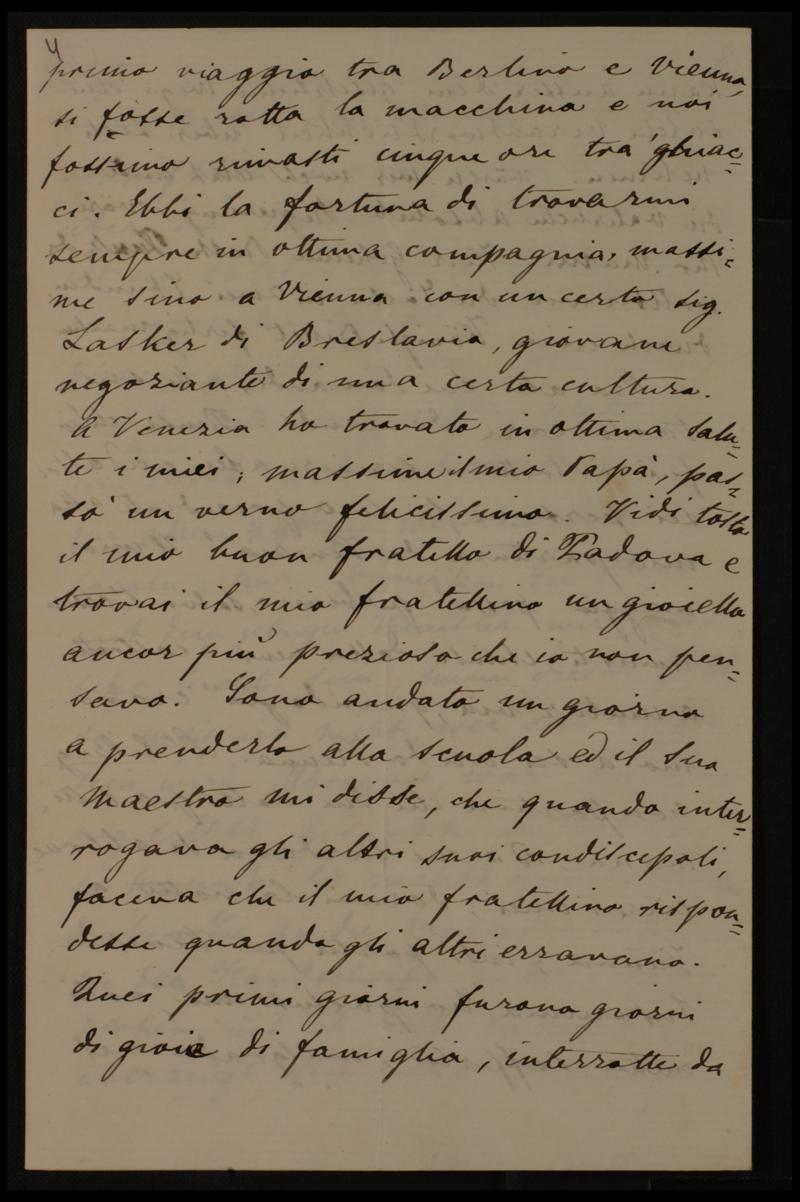 4
primo viaggio tra Berlino e Vienna,
si fosse rotta la macchina e noi
fossimo rimasti cinque ore tra' ghiac=
ci. Ebbi la fortuna di trovarmi
sempre in ottima compagnia, massi=
me sino a Vienna con un certo sig.
Lasker di Breslavia, giovane
negoziante di una certa cultura.
A Venezia ho trovato in ottima salu=
te i miei; massime il mio Papà, pas=
sò un verno felicissimo. Vidi tosto
il mio buon fratello di Padova e
trovai il mio fratellino un gioiello
ancor più prezioso che io non pen=
savo. Sono andato un giorno
a prenderlo alla scuola ed il suo
maestro mi disse, che quando inter=
rogava gli altri suoi condiscepoli,
faceva che il mio fratellino rispon=
desse quando gli altri erravano.
Quei primi giorni furono giorni
di gioie di famiglia, interrotte da